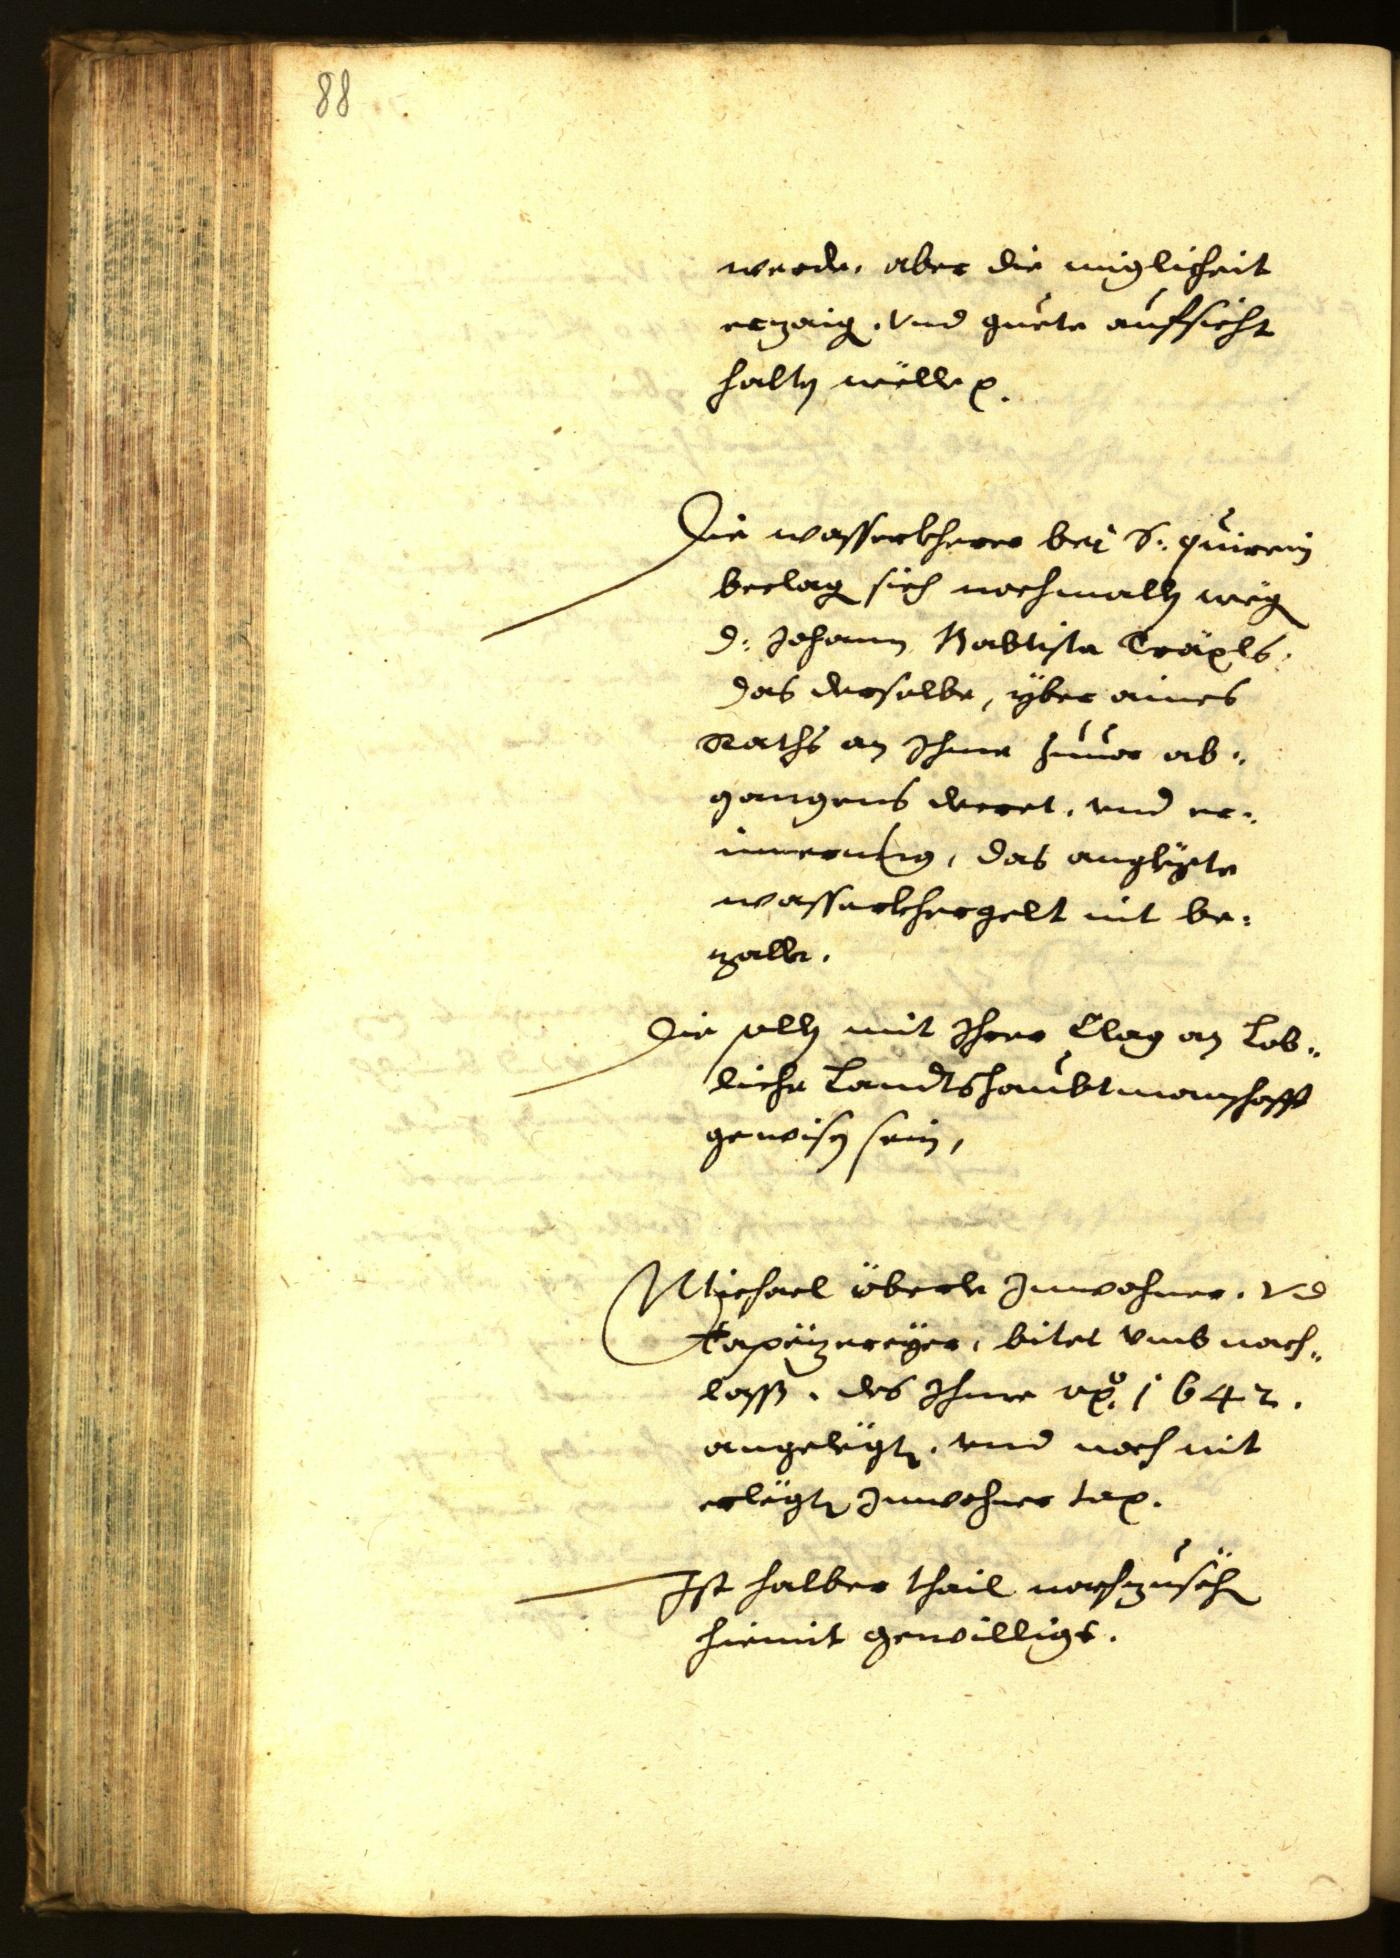 88
werde, aber die miglicheit
erzaig. Vnd guete aufsicht
halten welle.
Die wasserkherer bei S: quirein
beclag sich nochmalln weg
D: Johann Babtista Träxls,
das derselbe, yber aines
Raths an Ihme zuuor ab„
gangens decret, vnd er„
innerung, das anglegte
wasserkhergelt nit be„
zalle.
Die solln mit Ihrer Clag an Lob„
liche Landtshaubtmanschafft
gewisen sein,
Michael öberle Inwohner, Vnd
bitet vmb nach„
lass, des Ihme 1642.
angelegten, vnd noch nit
erlegten Inwohner tax.
Ist halber thail nachzusechen
hiemit gewilligt.